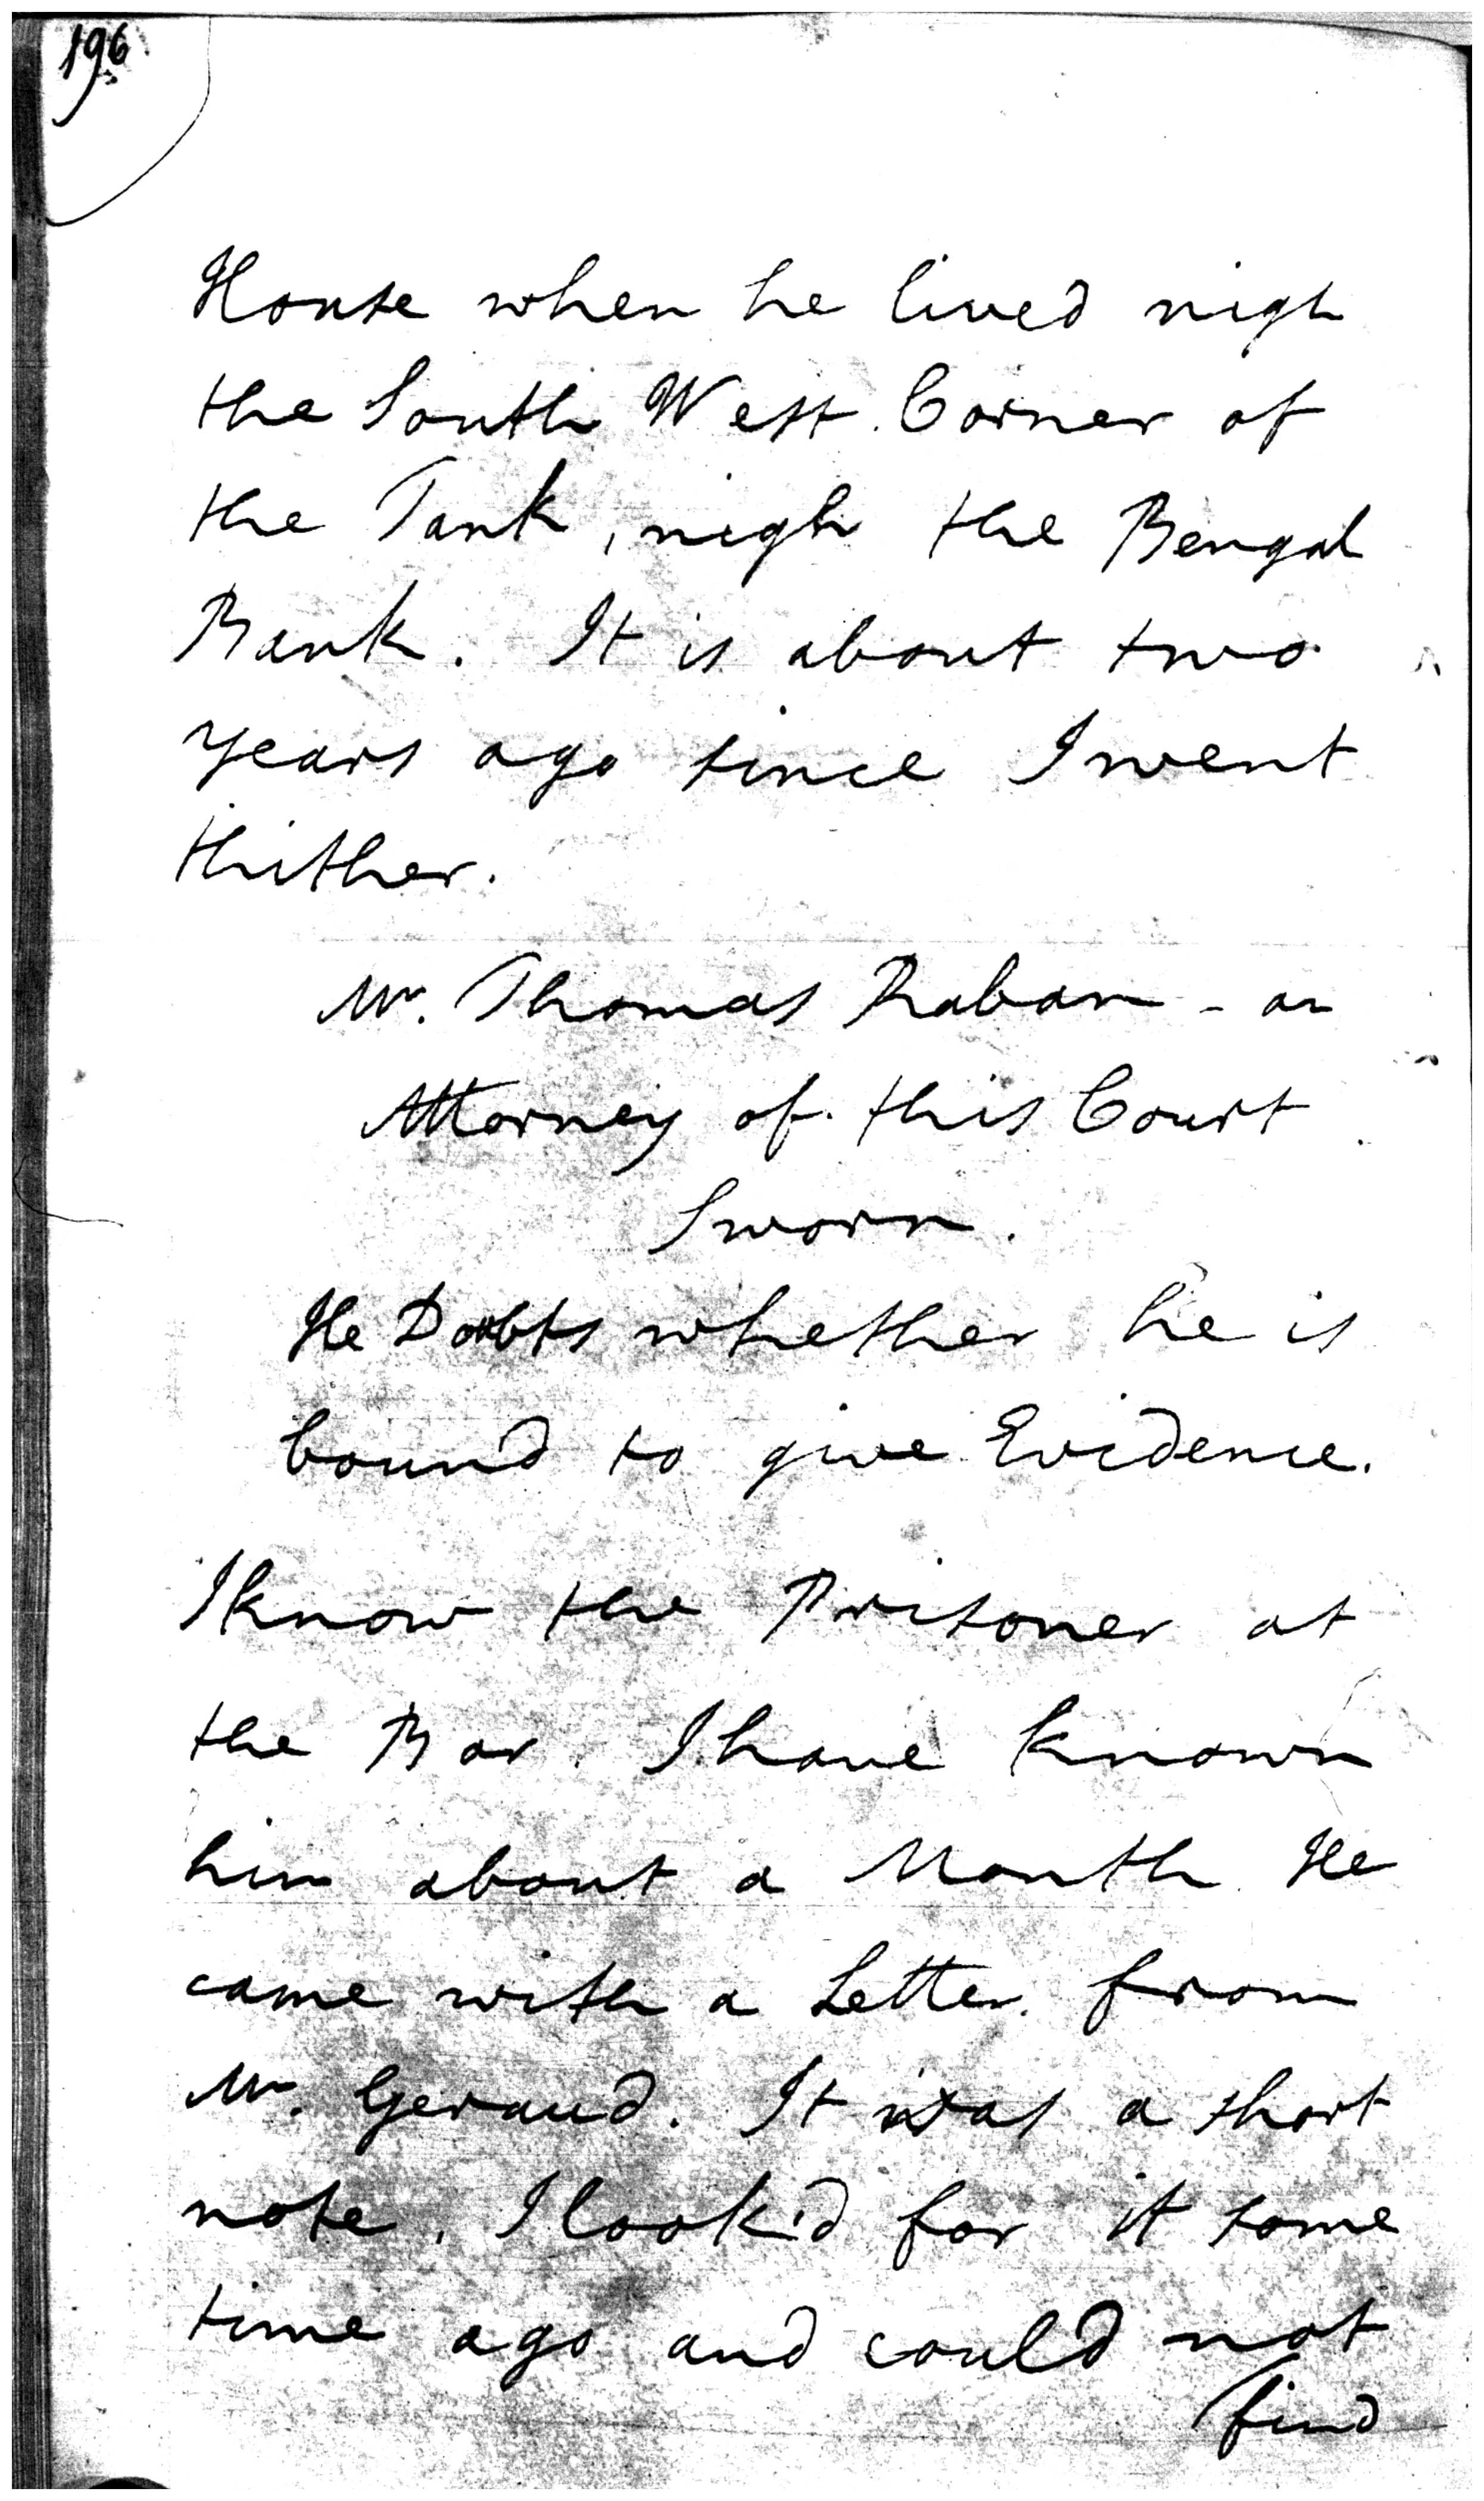 196
House when he lived nigh
the South West Corner of
the Tank, nigh the Bengal
Bank. It is about two
years ago since I went
thither.
Mr. Thomas Raban - an
Attorney of this Court
Sworn.
He Doubts whether he is
bound to give Evidence.
I know the Prisoner at
the Bar. I have known
him about a Month. He
came with a Letter from
Mr. Geraud. It was a short
note. I look'd for it some
time ago and could not
find